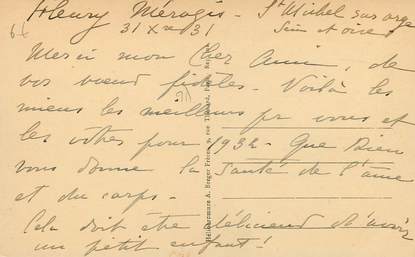 Fleury Mérogis - St Michel sur orge
31 Xbre 31 Seine et oise
Merci mon Cher Ami, de
vos vœux fidèles - Voilà les
miens les meilleurs pr vous et
les vôtres pour 1932 - Que Dieu
vous donne la santé de l'âme
et du corps -
Cela doit être délicieux d'avoir
un petit enfant !
Héliogravure A. Berger Frères, 9, rue Thénard, Paris